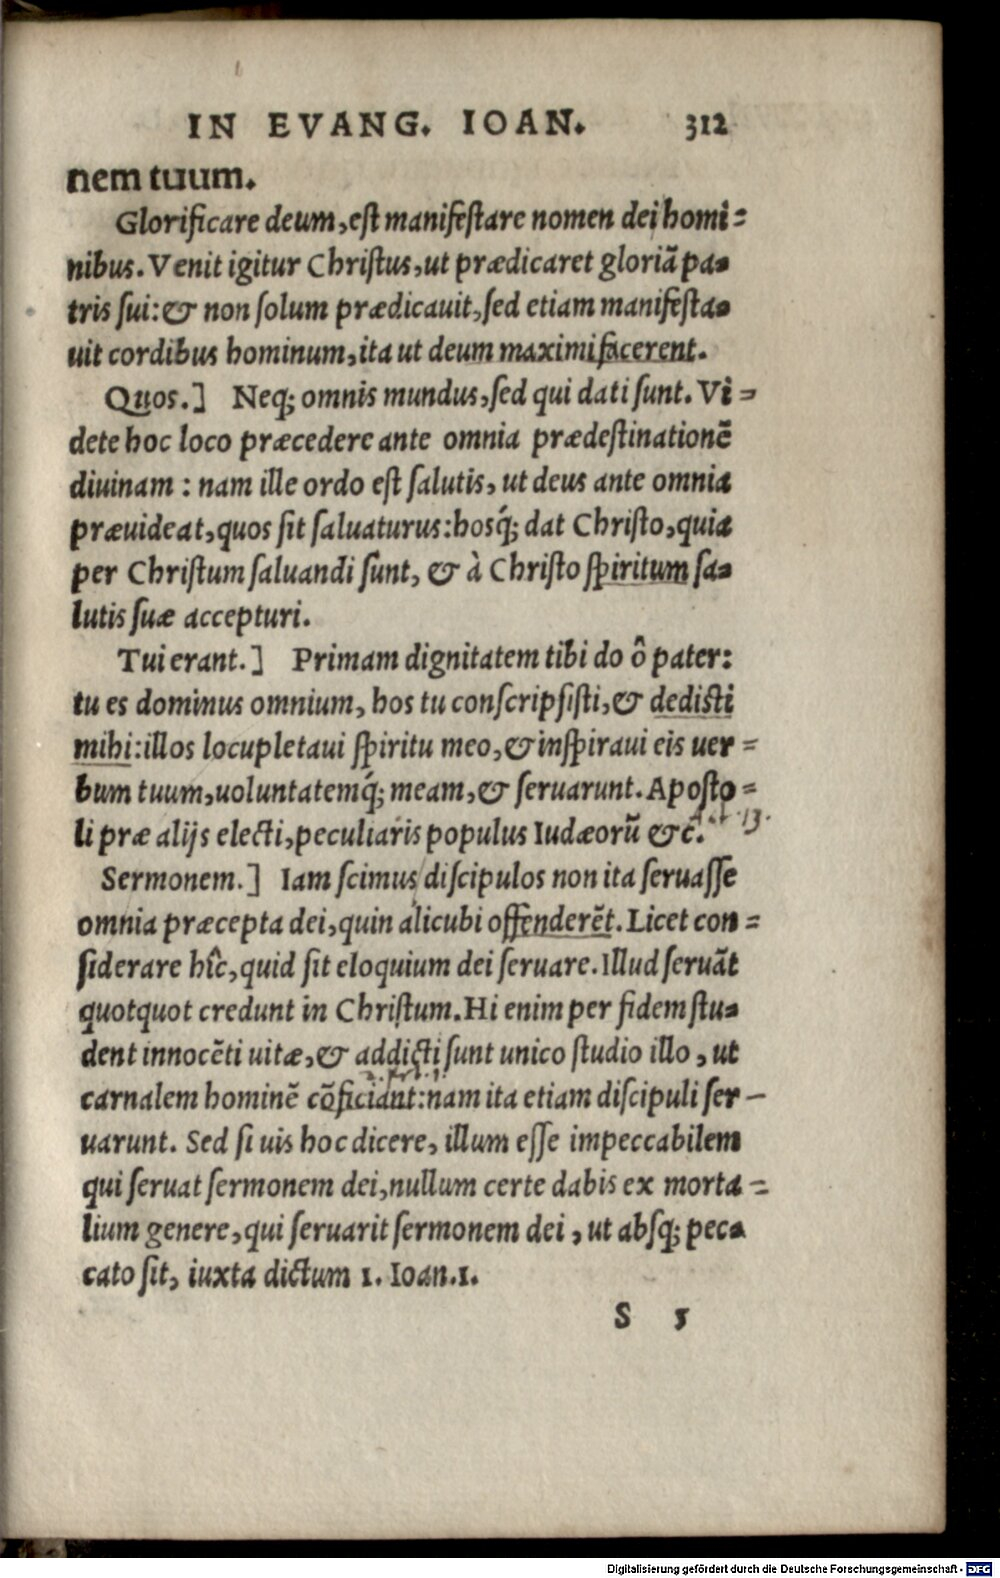 IN EVANG. IOAN. 312
nem tuum.
Glorificare deum, est manifestare nomen dei homi=
nibus. Venit igitur Christus, ut prædicaret gloriã pa=
tris sui: & non solum prædicauit, sed etiam manifesta=
uit cordibus hominum, ita ut deum maximifacerent.
Quos.] Neq; omnis mundus, sed qui dati sunt. Vi=
dete hoc loco præcedere ante omnia prædestinationẽ
diuinam: nam ille ordo est salutis, ut deus ante omnia
præuideat, quos sit saluaturus: hosq́; dat Christo, quia
per Christum saluandi sunt, & à Christo spiritum sa=
lutis suæ accepturi.
Tui erant.] Primam dignitatem tibi do ô pater:
tu es dominus omnium, hos tu conscripsisti, & dedisti
mihi: illos locupletaui spiritu meo, & inspiraui eis uer=
bum tuum, uoluntatemq́; meam, & seruarunt. Aposto=
li præ alijs electi, peculiaris populus Iudæorũ &c. 13.
Sermonem.] Iam scimus discipulos non ita seruasse
omnia præcepta dei, quin alicubi offenderẽt. Licet con=
siderare hîc, quid sit eloquium dei seruare. Illud seruãt
quotquot credunt in Christum. Hi enim per fidem stu=
dent innocẽti uitæ, & addicti sunt unico studio illo, ut
carnalem hominẽ cõficiant: nam ita etiam discipuli ser-
uarunt. Sed si uis hoc dicere, illum esse impeccabilem
qui seruat sermonem dei, nullum certe dabis ex morta=
lium genere, qui seruarit sermonem dei, ut absq; pec=
cato sit, iuxta dictum 1. Ioan. 1.
S 5
Digitalisierung gefördert durch die Deutsche Forschungsgemeinschaft - DFG